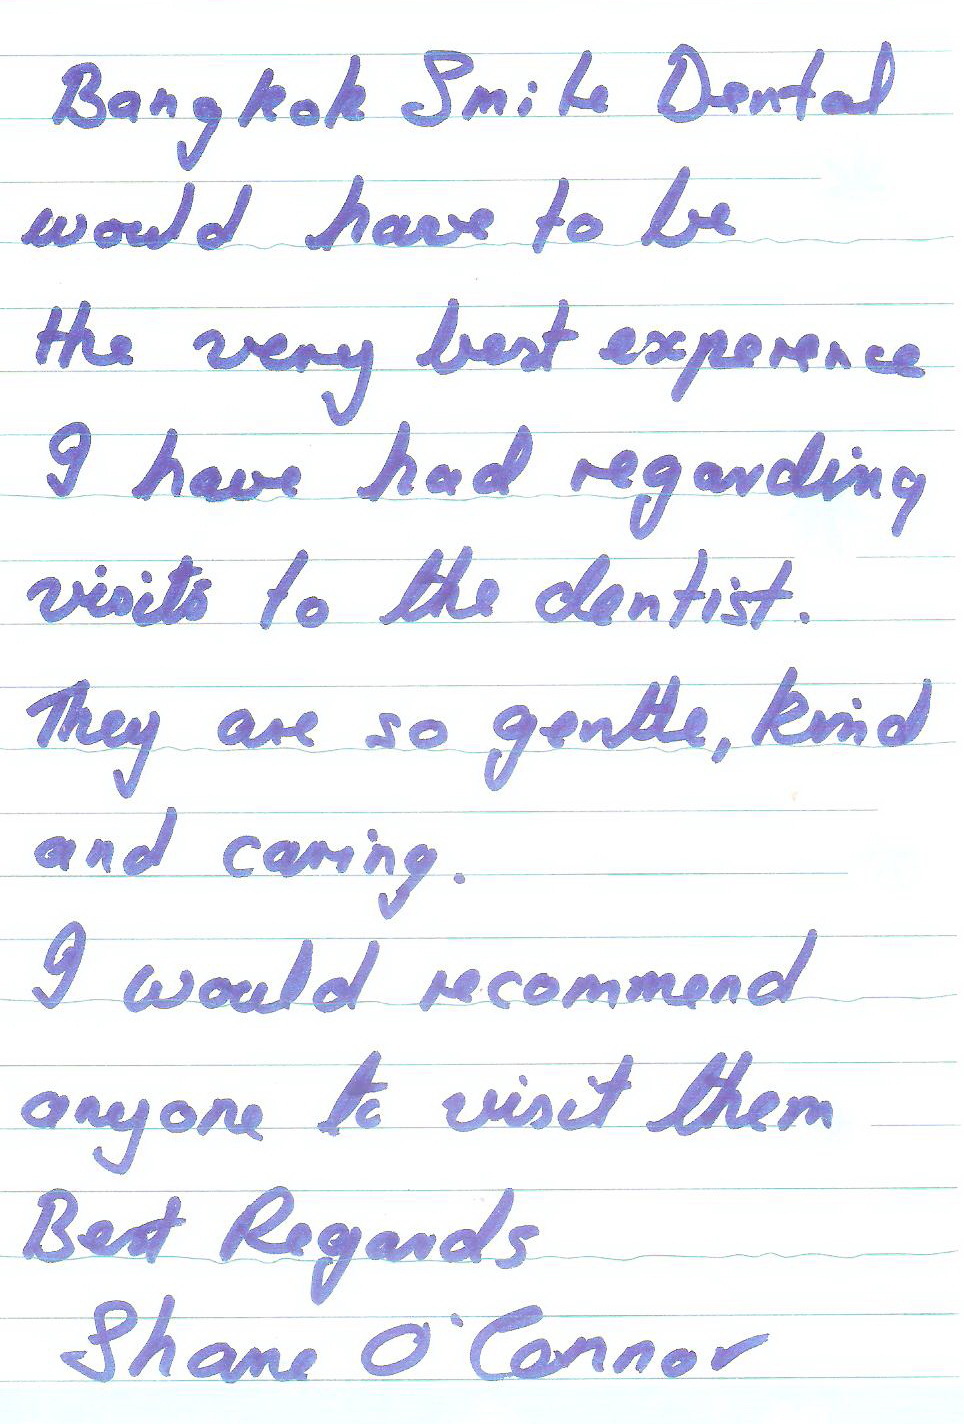 Bangkok Smile Dental
would have to be
the very best experence
I have had regarding
visits to the dentist.
They are so gentle, kind
and caring.
I would recommend
anyone to visit them
Best Regards
Shane O'Connor